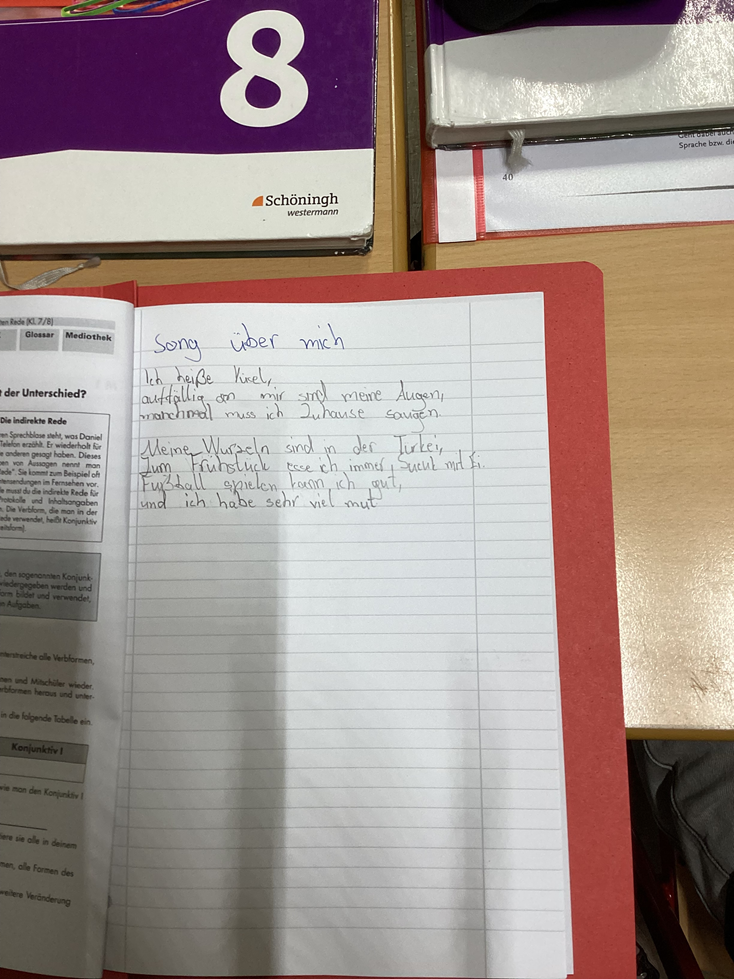 8
Schöningh
westermann
Sprache bzw. di
40
ten Rede (Kl. 7/8)
Glossar Mediothek
t der Unterschied?
Die indirekte Rede
en Sprechblase steht, was Daniel
Telefon erzählt. Er wiederholt für
e anderen gesagt haben. Dieses
ben von Aussagen nennt man
Rede". Sie kommt zum Beispiel oft
htensendungen im Fernsehen vor.
e musst du die indirekte Rede für
Protokolle und Inhaltsangaben
n. Die Verbform, die man in der
ede verwendet, heißt Konjunktiv
eitsform).
, den sogenannten Konjunk-
wiedergegeben werden und
orm bildet und verwendet,
n Aufgaben.
nterstreiche alle Verbformen,
nen und Mitschüler wieder.
erbformen heraus und unter-
in die folgende Tabelle ein.
Konjunktiv I
wie man den Konjunktiv I
iere sie alle in deinem
men, alle Formen des
weitere Veränderung
Song über mich
Ich heiße
auffällig an mir sind meine Augen,
manchmal muss ich Zuhause saugen.
Meine Wurzeln sind in der Türkei,
Zum Frühstück esse ich immer, Sucuk mit Ei.
Fußball spielen kann ich gut,
und ich habe sehr viel mut